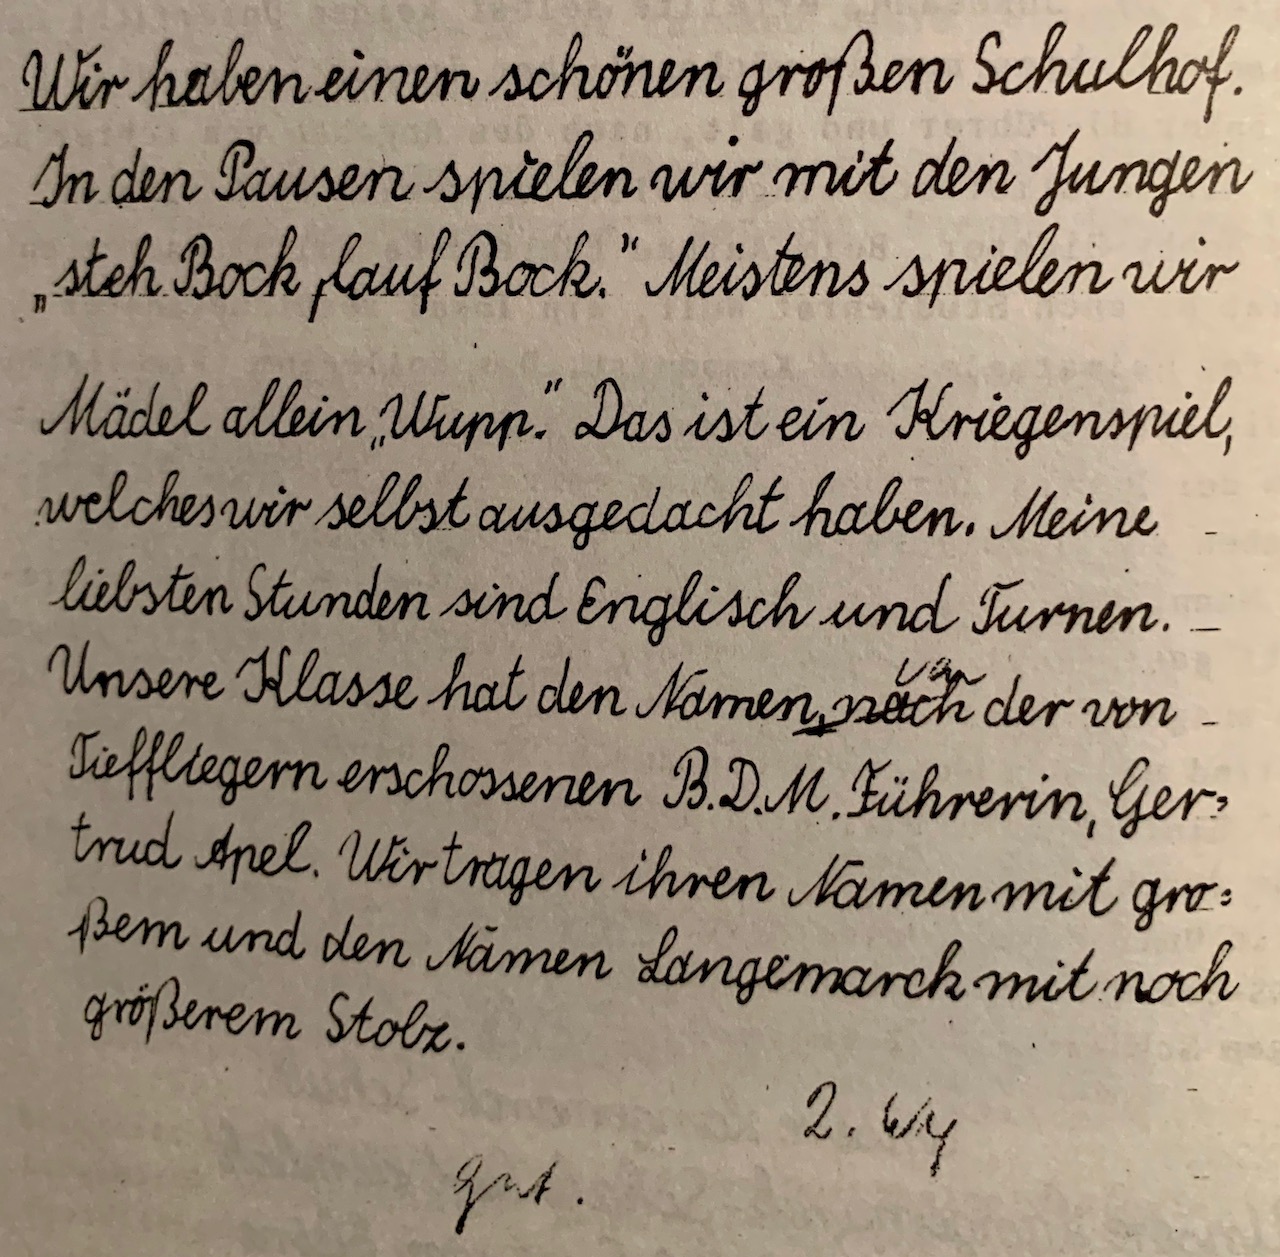 Wir haben einen schönen großen Schulhof.
In den Pausen spielen wir mit den Jungen
„steh Bock, lauf Bock.“ Meistens spielen wir
Mädel allein „Wupp.“ Das ist ein Kriegenspiel,
welches wir selbst ausgedacht haben. Meine
liebsten Stunden sind Englisch und Turnen.
Unsere Klasse hat den Namen, nach der von
Tieffliegern erschossenen B.D.M. Führerin, Ger=
trud Apel. Wir tragen ihren Namen mit gro=
ßem und den Namen Langemarck mit noch
größerem Stolz.
2.
gut.